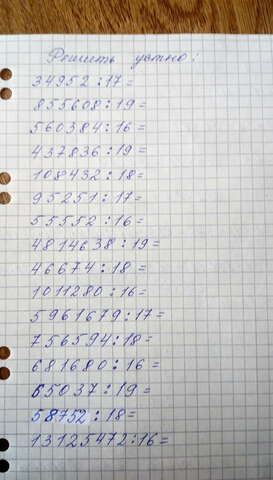 Решить устно:
34952:17=
855608:19=
560384:16=
437836:19=
108432:18=
95251:17=
55552:16=
4814638:19=
46674:18=
1011280:16=
5961679:17=
756594:18=
681680:16=
65037:19=
58752:18=
13125472:16=